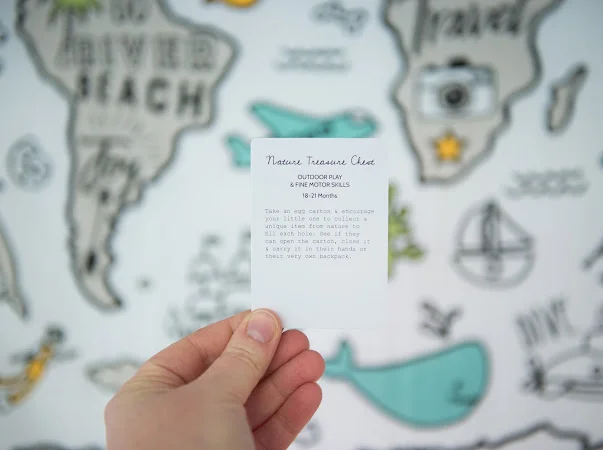 RIVER
BEACH
Travel
Nature Treasure Chest
OUTDOOR PLAY
& FINE MOTOR SKILLS
18-21 Months
Take an egg carton & encourage
your little one to collect a
unique item from nature to
fill each hole. See if they
can open the carton, close it
& carry it in their hands or
their very own backpack.
DIVE